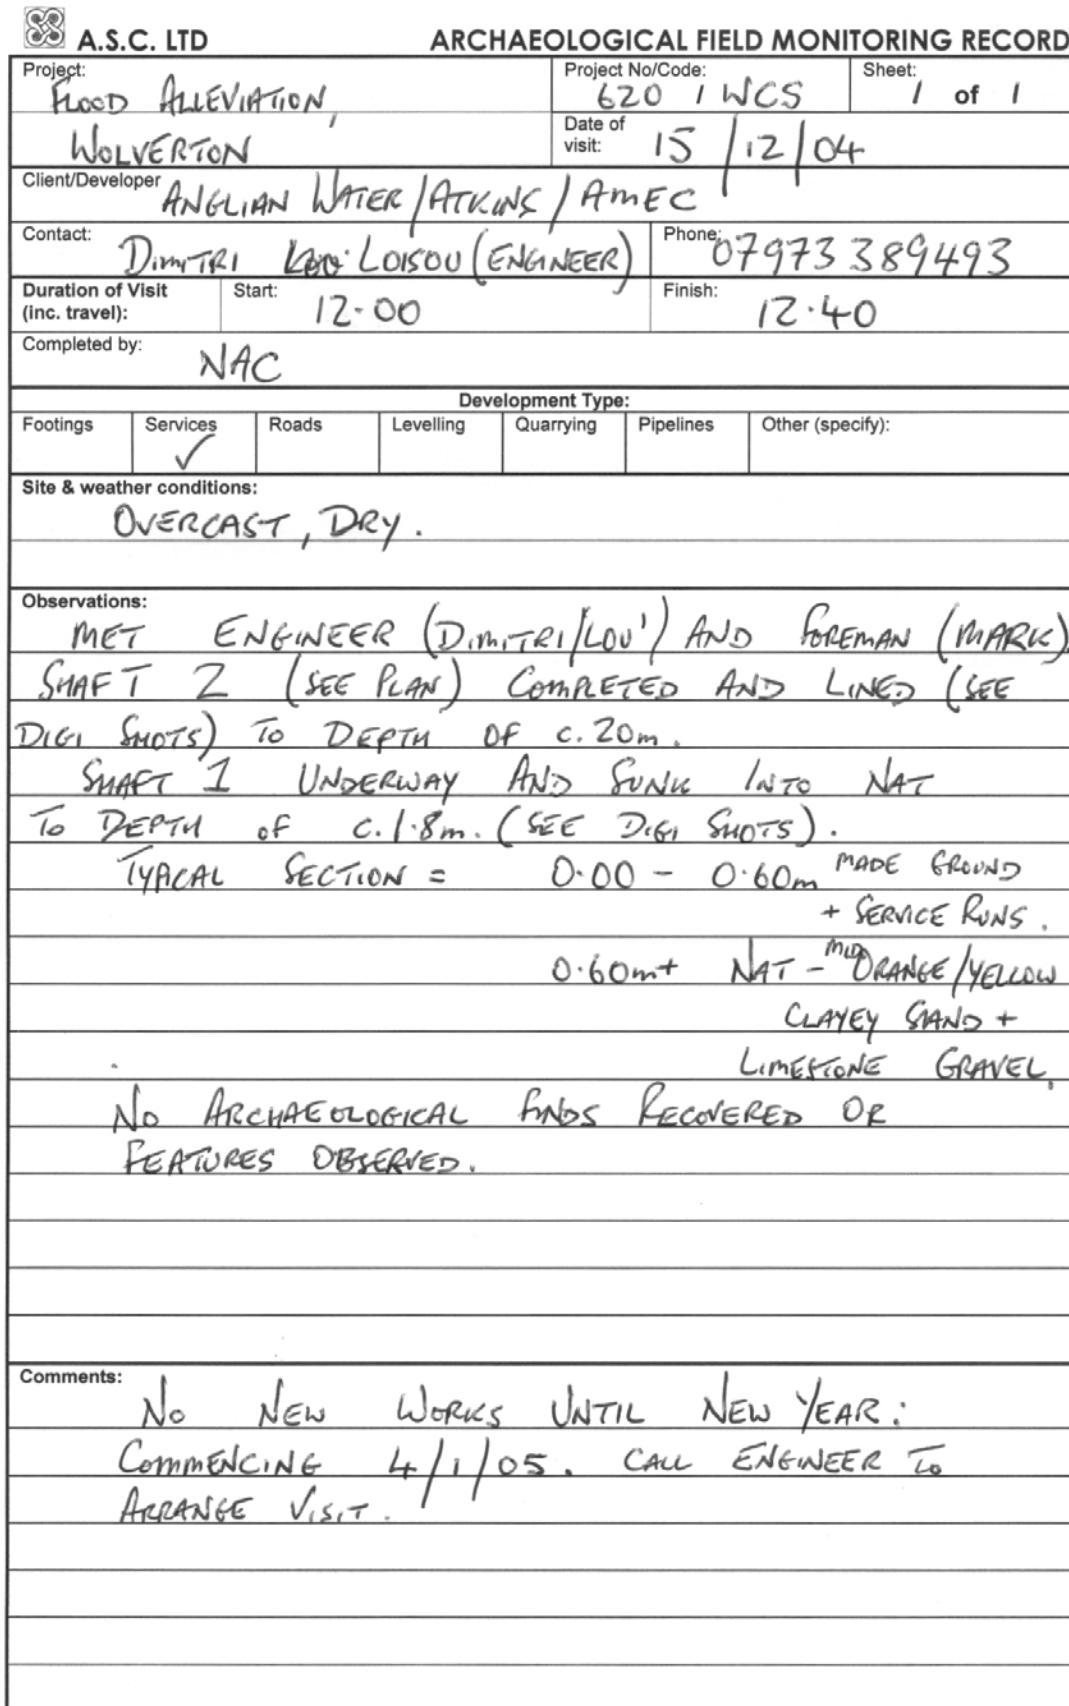 A.S.C. LTD ARCHAEOLOGICAL FIELD MONITORING RECORD
Project: Project No/Code: Sheet:
FLOOD ALLEVIATION, 620 / WCS 1 of 1
WOLVERTON Date of visit: 15/12/04
Client/Developer ANGLIAN WATER/ATKINS/AMEC
Contact: DIMITRI LOISOU (ENGINEER) Phone: 07973 389493
Duration of Visit (inc. travel): Start: 12.00 Finish: 12.40
Completed by: NAC
Development Type:
Footings Services Roads Levelling Quarrying Pipelines Other (specify):
✓
Site & weather conditions:
OVERCAST, DRY.
Observations:
MET ENGINEER (DIMITRI/LOU') AND FOREMAN (MARK).
SHAFT 2 (SEE PLAN) COMPLETED AND LINED (SEE
DIGI SHOTS) TO DEPTH OF c.20m.
SHAFT 1 UNDERWAY AND SUNK INTO NAT
TO DEPTH OF c.1.8m. (SEE DIGI SHOTS).
TYPICAL SECTION = 0.00 - 0.60m MADE GROUND
+ SERVICE RUNS.
0.60m+ NAT - MID ORANGE/YELLOW
CLAYEY SAND +
LIMESTONE GRAVEL.
NO ARCHAEOLOGICAL FINDS RECOVERED OR
FEATURES OBSERVED.
Comments:
NO NEW WORKS UNTIL NEW YEAR:
COMMENCING 4/1/05. CALL ENGINEER TO
ARRANGE VISIT.